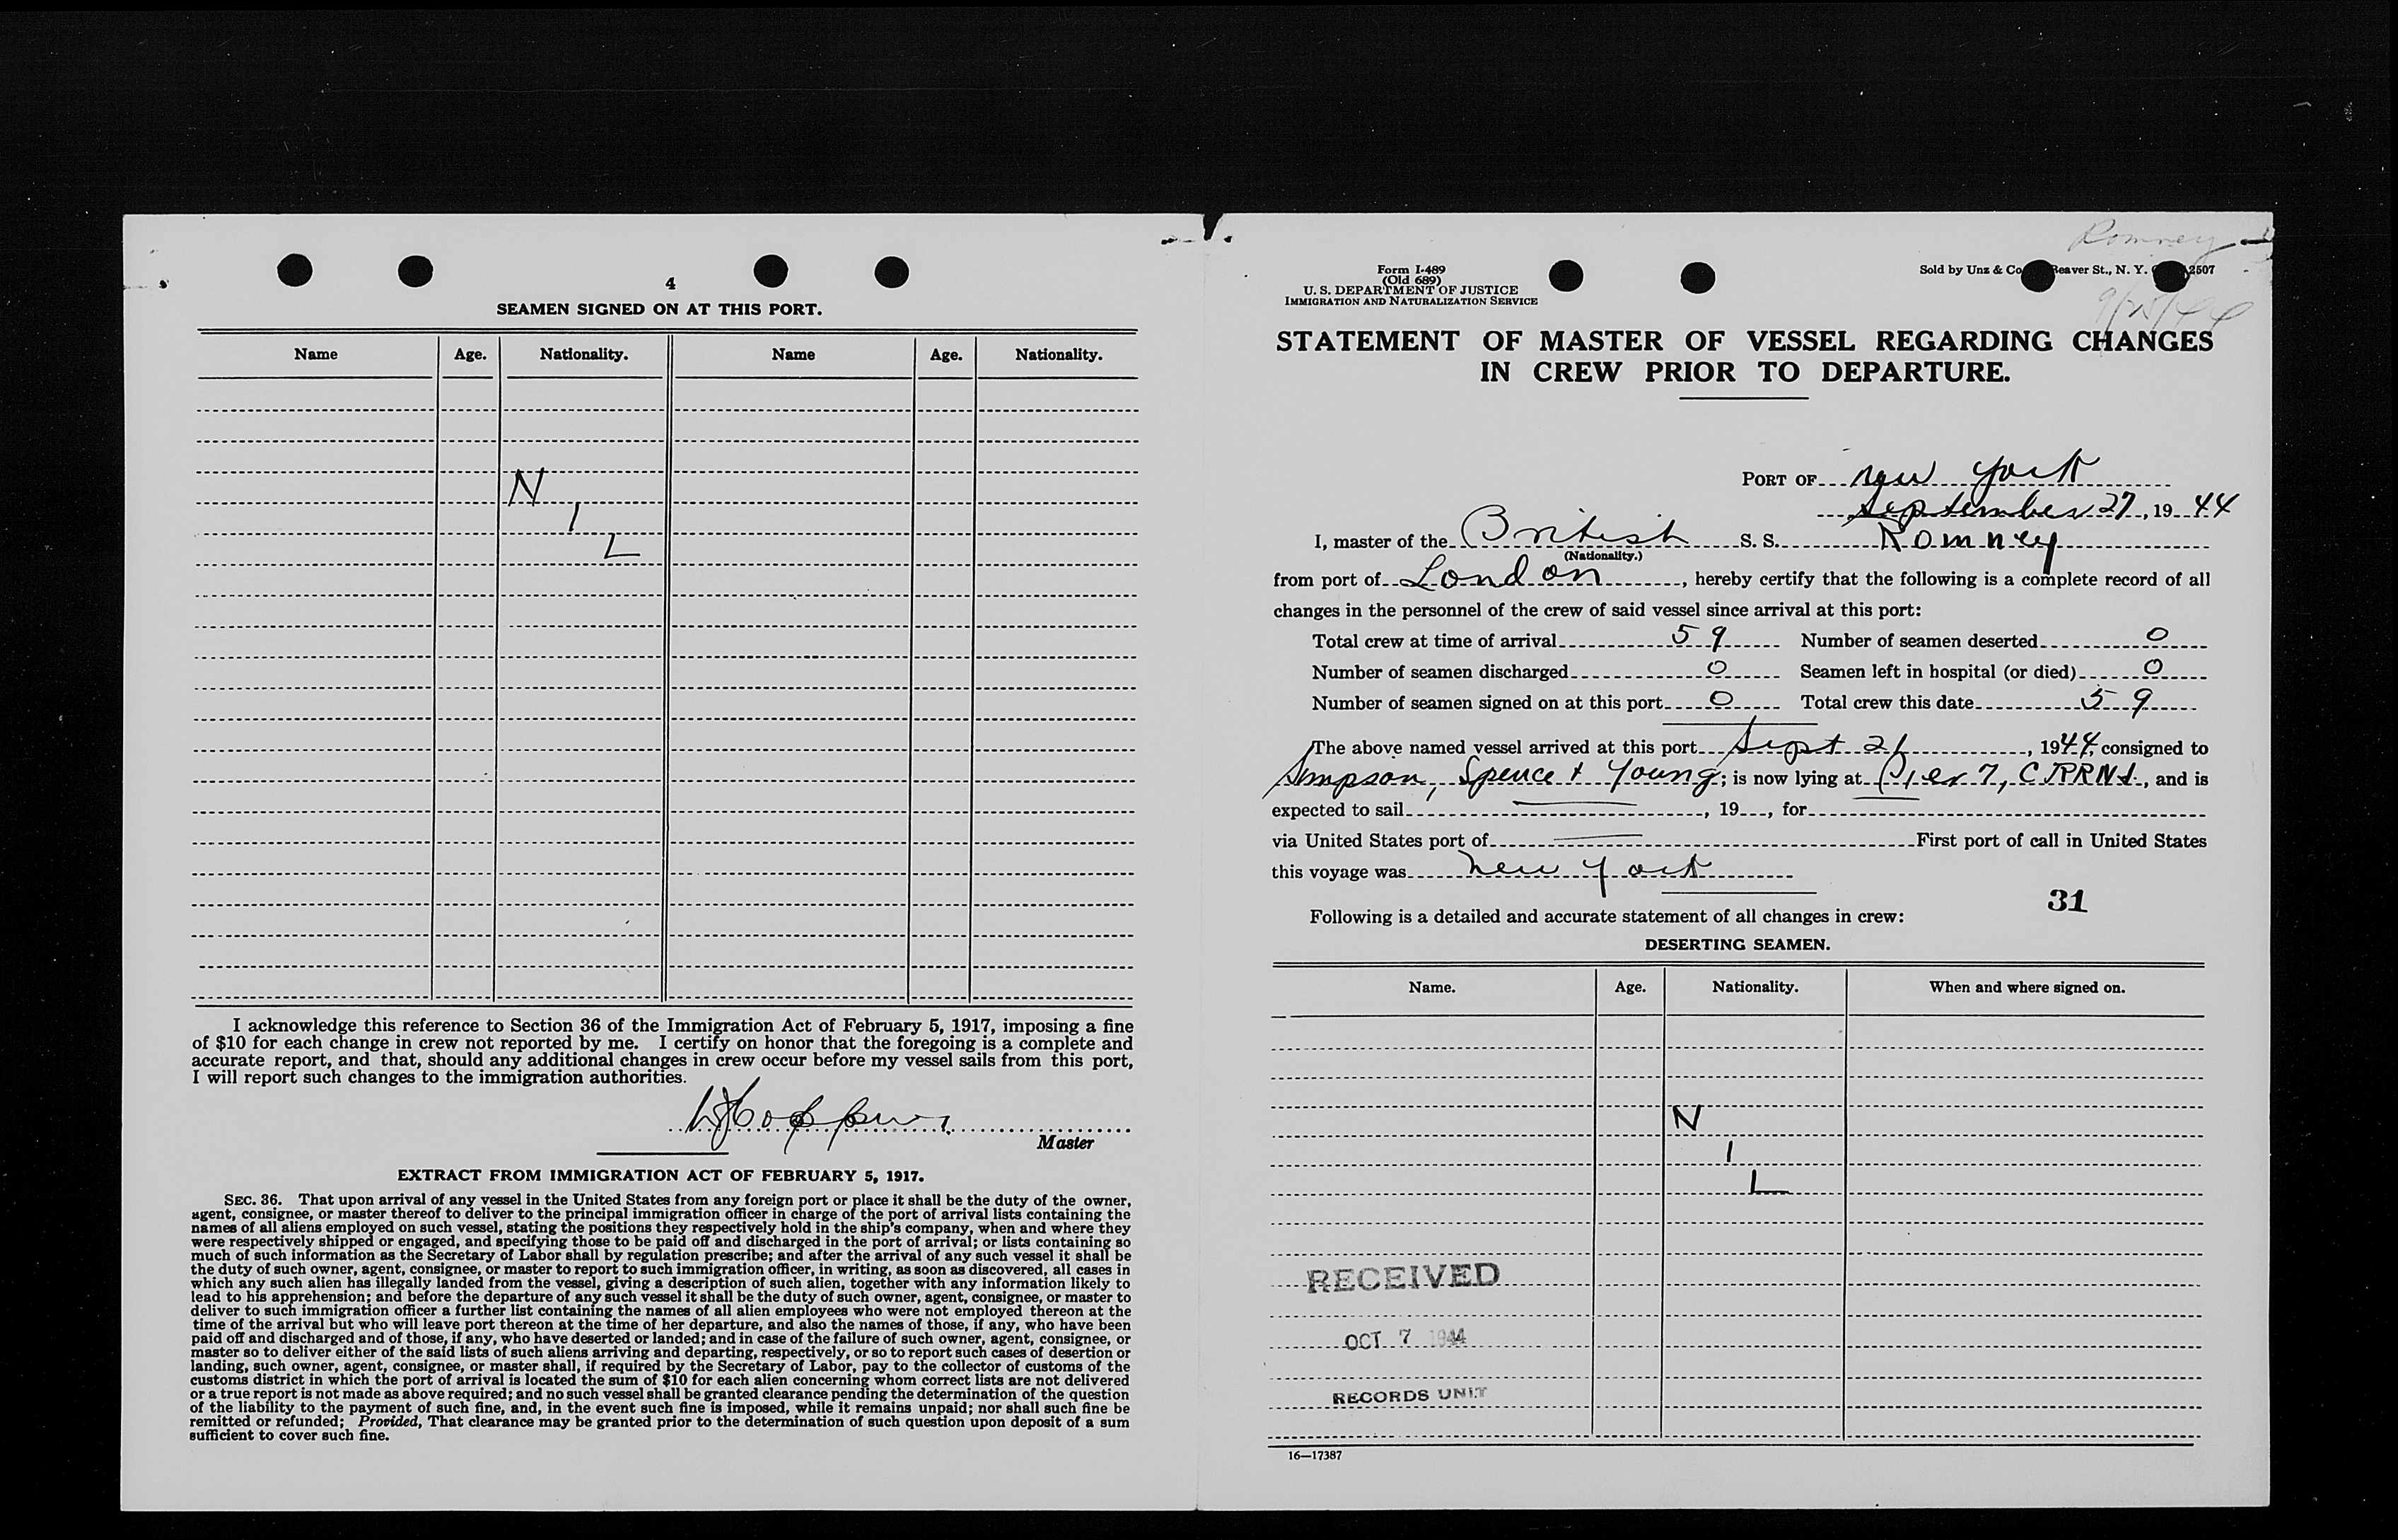 4
SEAMEN SIGNED ON AT THIS PORT.
Name Age. Nationality. Name Age. Nationality.
N
I
L
I acknowledge this reference to Section 36 of the Immigration Act of February 5, 1917, imposing a fine
of $10 for each change in crew not reported by me. I certify on honor that the foregoing is a complete and
accurate report, and that, should any additional changes in crew occur before my vessel sails from this port,
I will report such changes to the immigration authorities.
Master
EXTRACT FROM IMMIGRATION ACT OF FEBRUARY 5, 1917.
SEC. 36. That upon arrival of any vessel in the United States from any foreign port or place it shall be the duty of the owner,
agent, consignee, or master thereof to deliver to the principal immigration officer in charge of the port of arrival lists containing the
names of all aliens employed on such vessel, stating the positions they respectively hold in the ship's company, when and where they
were respectively shipped or engaged, and specifying those to be paid off and discharged in the port of arrival; or lists containing so
much of such information as the Secretary of Labor shall by regulation prescribe; and after the arrival of any such vessel it shall be
the duty of such owner, agent, consignee, or master to report to such immigration officer, in writing, as soon as discovered, all cases in
which any such alien has illegally landed from the vessel, giving a description of such alien, together with any information likely to
lead to his apprehension; and before the departure of any such vessel it shall be the duty of such owner, agent, consignee, or master to
deliver to such immigration officer a further list containing the names of all alien employees who were not employed thereon at the
time of the arrival but who will leave port thereon at the time of her departure, and also the names of those, if any, who have been
paid off and discharged and of those, if any, who have deserted or landed; and in case of the failure of such owner, agent, consignee, or
master so to deliver either of the said lists of such aliens arriving and departing, respectively, or so to report such cases of desertion or
landing, such owner, agent, consignee, or master shall, if required by the Secretary of Labor, pay to the collector of customs of the
customs district in which the port of arrival is located the sum of $10 for each alien concerning whom correct lists are not delivered
or a true report is not made as above required; and no such vessel shall be granted clearance pending the determination of the question
of the liability to the payment of such fine, and, in the event such fine is imposed, while it remains unpaid; nor shall such fine be
remitted or refunded; Provided, That clearance may be granted prior to the determination of such question upon deposit of a sum
sufficient to cover such fine.
Romney
Form I-489
(Old 689)
U. S. DEPARTMENT OF JUSTICE
IMMIGRATION AND NATURALIZATION SERVICE
Sold by Unz & Co Beaver St., N. Y. 2507
STATEMENT OF MASTER OF VESSEL REGARDING CHANGES
IN CREW PRIOR TO DEPARTURE.
PORT OF New York
September 27, 1944
I, master of the British S. S. Romney
(Nationality.)
from port of London, hereby certify that the following is a complete record of all
changes in the personnel of the crew of said vessel since arrival at this port:
Total crew at time of arrival 59 Number of seamen deserted 0
Number of seamen discharged 0 Seamen left in hospital (or died) 0
Number of seamen signed on at this port 0 Total crew this date 59
The above named vessel arrived at this port Sept 21, 1944, consigned to
Simpson, Spence & Young; is now lying at Pier 7, CJRRNJ., and is
expected to sail , 19 , for
via United States port of First port of call in United States
this voyage was New York
31
Following is a detailed and accurate statement of all changes in crew:
DESERTING SEAMEN.
Name. Age. Nationality. When and where signed on.
N
I
L
RECEIVED
OCT 7 1944
RECORDS UNIT
16—17387